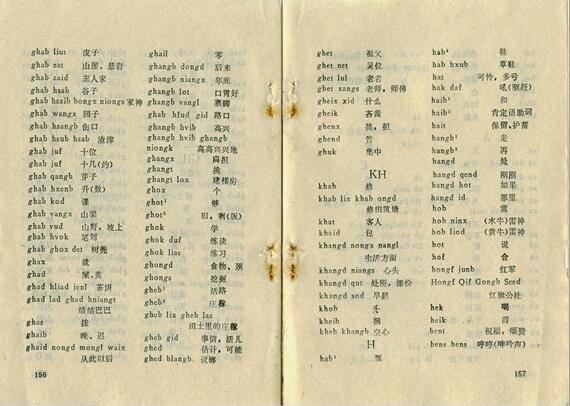 ghab liut 皮子
ghab zat 山崖、悬岩
ghab zaid 主人家
ghab hsab 谷子
ghab hsaib bongx niongx 家神
ghab wangx 园子
ghab hsangb 伤口
ghab hsub hsab 渣滓
ghab juf 十位
ghab juf 十几(约)
ghab qangb 芽子
ghab hxenb 升(数)
ghab kod 课
ghab vangx 山梁
ghab vud 山野，坡上
ghab hvok 笔划
ghab ghox det 树蔸
ghax 就
ghad 屎，粪
ghad hliad jenl 茶饼
ghad lad ghad hniangt
结结巴巴
ghas 挂
ghaib 晚、迟
ghaid nongd mongl waix
从此以后
156
ghail 零
ghangb dongd 后来
ghangb niangx 年底
ghangb lot 口胃好
ghangb vangl 寨脚
ghab hfud gid 路口
ghangb hvib 高兴
ghangb hvib ghangb
niongk 高高兴兴地
ghangx 扁担
ghangt 挑
ghangt lox 建楼房
ghox 个
ghot¹ 够
ghot² 旧，剩(饭)
ghok 学
ghok duf 练读
ghok lias 练习
ghongd 食物、颈
ghongs 挖掘
gheb¹ 活路
gheb² 庄稼
gheb lix gheb las
田土里的庄稼
gheb gid 事情，活儿
ghed 估计，可能
ghed hlangb 议榔
ghet 祖父
ghet net 灵位
ghet lul 老者
ghet xangs 老师，师傅
gheix xid 什么
gheik 吝啬
ghenx 挑，担
ghend 管
ghuk 集中
KH
khab 修
khab lix khab ongd
修田筑塘
khat 客人
khaid 包
khangd nongx nangl
生活方面
khangd niangs 心头
khangd qut 处所，部份
khangd xod 早晨
khob 头
kheib 捆
kheb khangb 空心
H
hab¹ 箍
hab² 鞋
hab hxub 草鞋
hat 可怜，多亏
hak daf 吼(驱赶)
haib¹ 和
haib² 肯定语助词
hait 保留、护蓄
hangb¹ 走
hangb² 再
hangd 处
hangd qend 刚刚
hangd hot 如果
hangd id 那里
hob 雷
hob ninx (水牛)雷神
hob liod (黄牛)雷神
hot 说
hof 合
hongf junb 红军
Hongf Qif Gongb Seed
红旗公社
hek 喝
heik 舀
hent 祝福，颂赞
hens hens 哼哼(呻吟声)
157